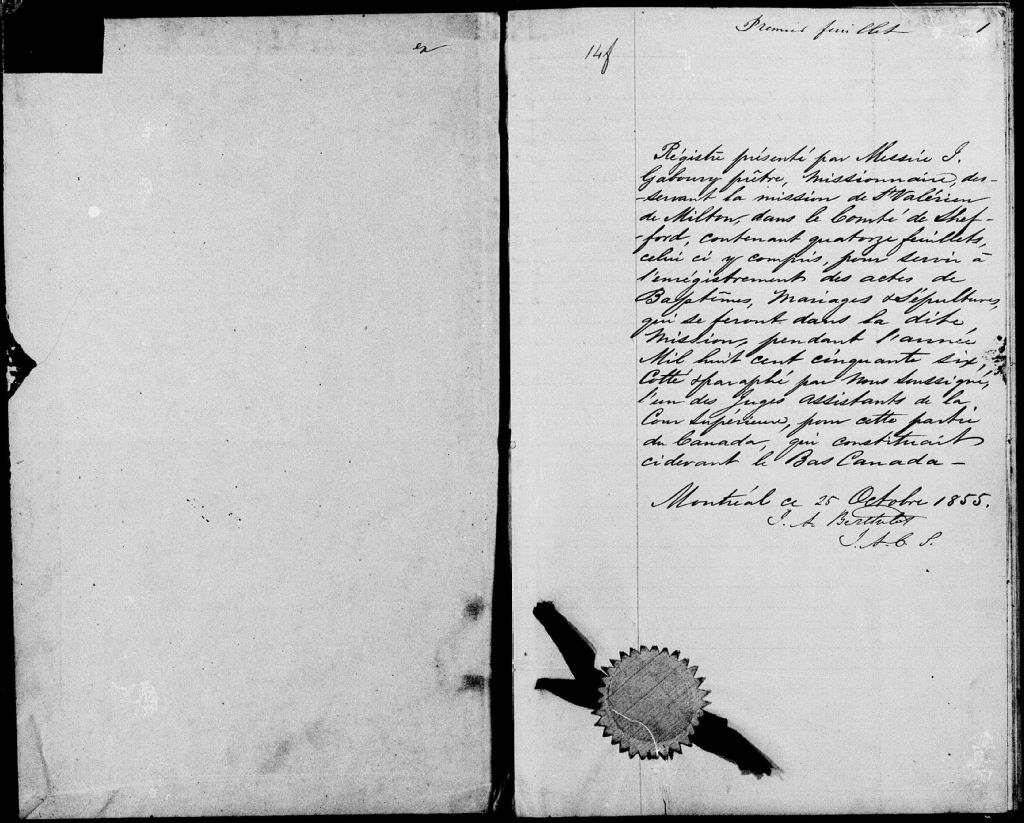 Premier feuillet 1
14f
Régistre présenté par Messire J.
Gaboury prêtre, Missionnaire, des-
-servant la mission de St Valérien
de Milton, dans le Comté de Shef-
-ford, contenant quatorze feuillets,
celui ci y compris, pour servir à
l'enrégistrement des actes de
Baptêmes, Mariages & Sépultures,
qui se feront dans la dite
Mission, pendant l'année
Mil huit cent cinquante six,
Cotté & paraphé par Nous Soussigné,
l'un des Juges Assistants de la
Cour Supérieure, pour cette partie
du Canada, qui constituait
cidevant le Bas Canada —
Montréal ce 25 Octobre 1855.
J. A. Berthelot
J. A. C. S.